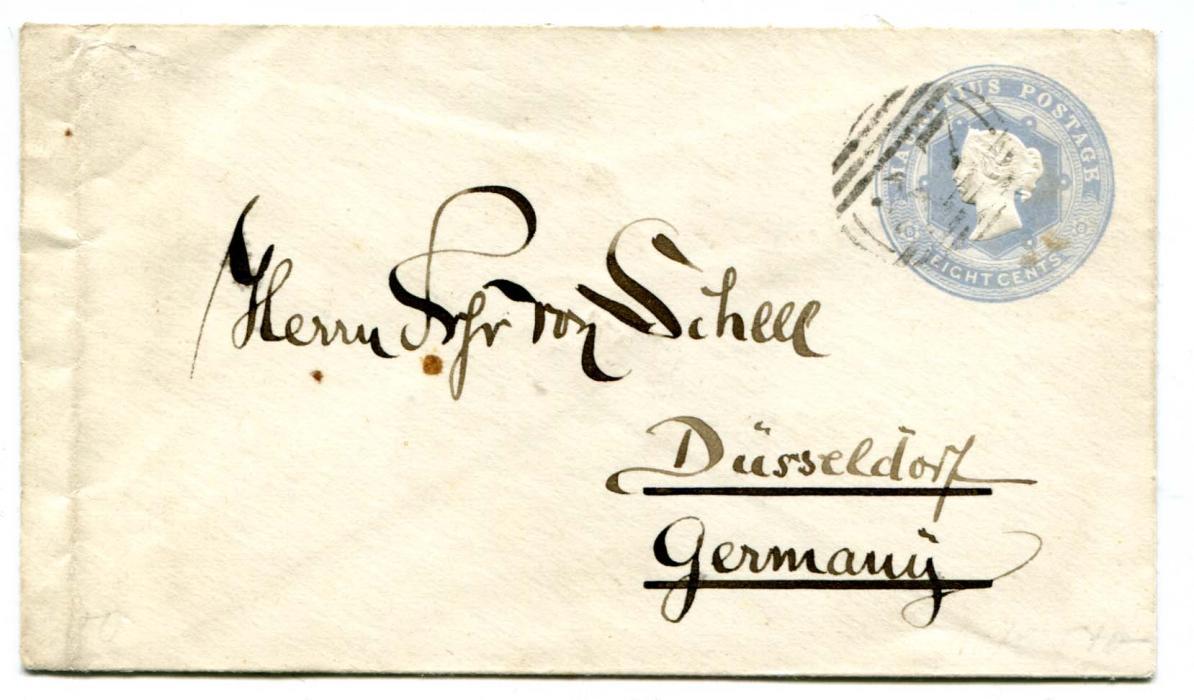 MAURITIUS POSTAGE
8 8
EIGHT CENTS
Herrn Frhr von Schell
Düsseldorf
Germanÿ